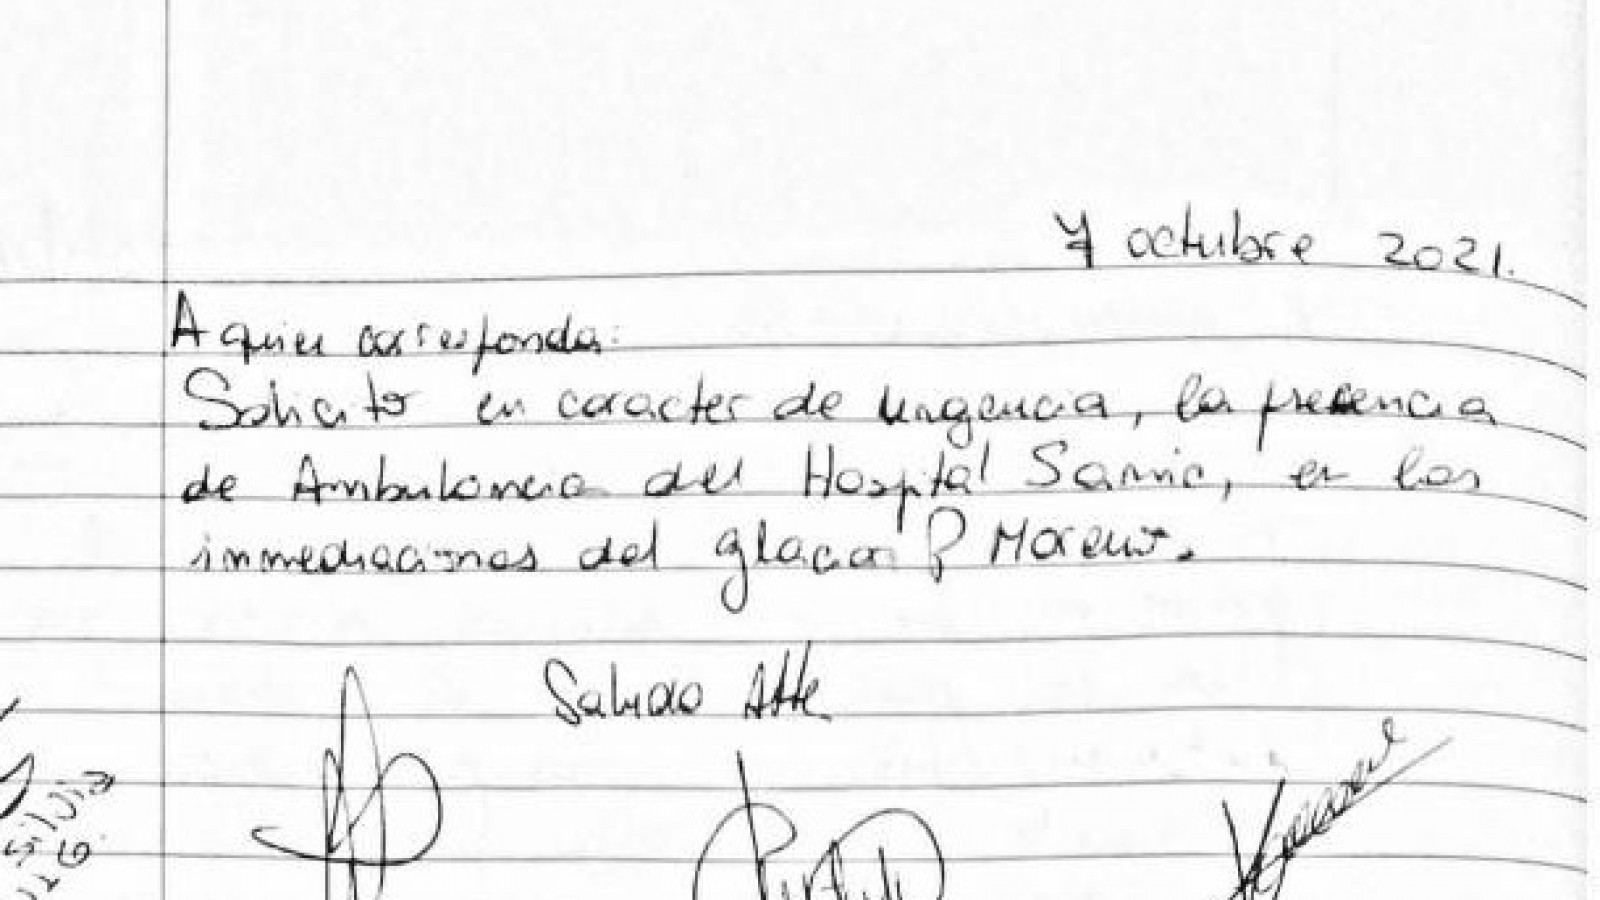 7 octubre 2021.
A quien corresponda:
Solicito en caracter de urgencia, la presencia
de Ambulancia del Hospital Samic, en las
inmediaciones del glaciar P Moreno.
Saludo Atte